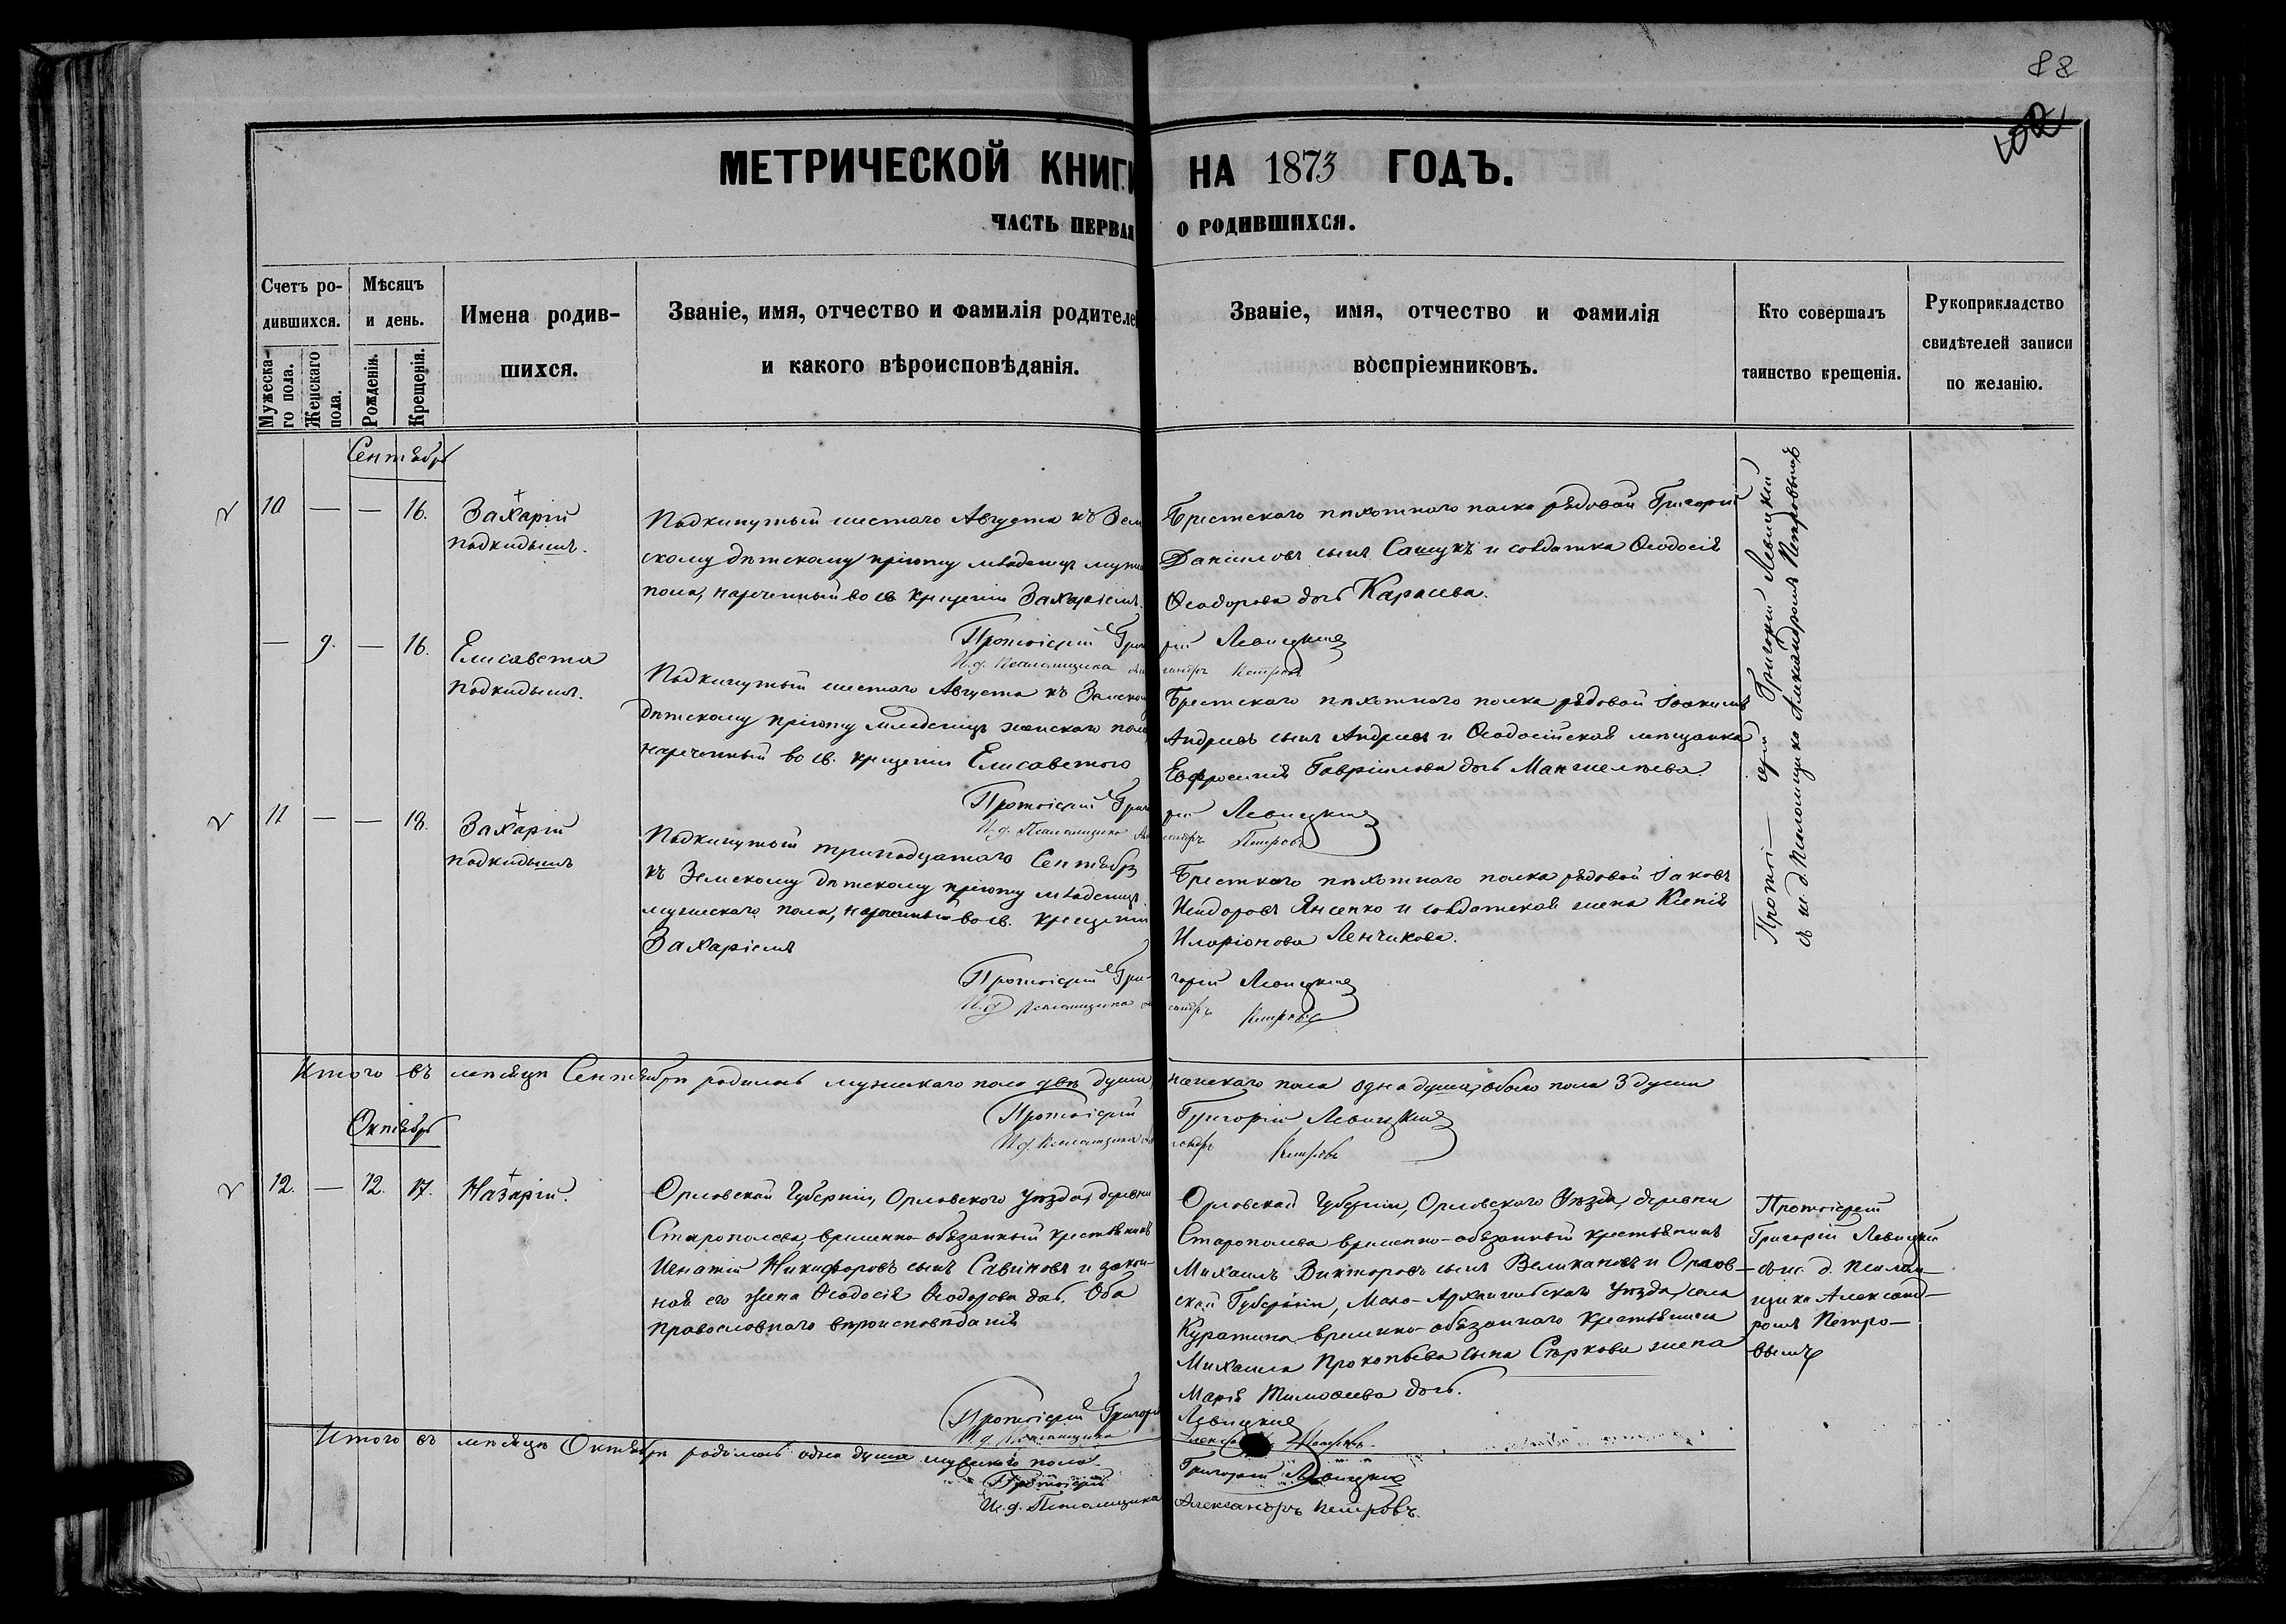 88
102
МЕТРИЧЕСКОЙ КНИГИ НА 1873 ГОДЪ.
ЧАСТЬ ПЕРВАЯ О РОДИВШИХСЯ.
Счетъ ро-
дившихся.
Мужеска-
го пола.
Женскаго
пола.
Мѣсяцъ
и день.
Рожденія.
Крещенія.
Имена родив-
шихся.
Званіе, имя, отчество и фамилія родителей
и какого вѣроисповѣданія.
Званіе, имя, отчество и фамилія
воспріемниковъ.
Кто совершалъ
таинство крещенія.
Рукоприкладство
свидѣтелей записи
по желанію.
Сентябрь
10 — — 16.
Захарій
подкидышъ.
Подкинутый шестаго Августа къ Зем
скому дѣтскому пріюту младенецъ муже
пола, нареченный во св крещеніи Захаріемъ.
Брестскаго пѣхотнаго полка рядовой Григорій
Даніиловъ сынъ Сащукъ и солдатка Ѳеодосія
Ѳеодорова дочь Карасева.
Протоіерей Григорій Левицкій
И. д. Псаломщика Александръ Петровъ
— 9. — 16.
Елисавета
подкидышъ.
Подкинутый шестаго Августа къ Земскому
дѣтскому пріюту младенецъ женскаго пола,
нареченный во св. крещеніи Елисаветою
Брестскаго пѣхотнаго полка рядовой Іоакимъ
Андреевъ сынъ Андреевъ и Ѳеодосійская мѣщанка
Евфросинія Гавріилова дочь
Протоіерей Григорій Левицкій
И. д. Псаломщика Александръ Петровъ
11 — — 18.
Захарій
подкидышъ
Подкинутый тринадцатаго Сентября
къ Земскому дѣтскому пріюту младенецъ
мужескаго пола, нареченный во св. крещеніи
Захаріемъ
Бресткаго пѣхотнаго полка рядовой Іаковъ
Исидоровъ Янсенко и солдатская жена Ксенія
Иларіонова Ленчикова.
Протоіерей Григорій Левицкій
И. д. Псаломщика Александръ Петровъ
Протоі—ерей Григорій Левицкій
съ и. д. Псаломщика Александромъ Петровымъ
Итого въ мѣсяцѣ Сентябрѣ родилось мужескаго пола двѣ души, женскаго пола одна душа, обоего пола 3 души
Протоіерей Григорій Левицкій
И. д. Псаломщика Александръ Петровъ
Октябрь
12. — 12. 17.
Назарій.
Орловской Губерніи, Орловскаго уѣзда, деревни
Старополева, временно-обязанный крестьянинъ
Игнатій Никифоровъ сынъ Савиновъ и закон-
ная его жена Ѳеодосія Ѳеодорова дочь. Оба
православнаго вѣроисповѣданія
Орловской Губерніи, Орловскаго Уѣзда, деревни
Старополева временно-обязанный крестьянинъ
Михаилъ Викторовъ сынъ Великановъ и Орлов-
ской Губерніи, Мало-Архангельскаго уѣзда, села
Куракина временно-обязаннаго крестьянина
Михаила Прокопьева сына Сѣркова жена
Марія Тимоѳеева дочь.
Протоіерей
Григорій Левицкій
съ ис. д. Псалом-
щика Александ-
ромъ Петро-
вымъ
Протоіерей Григорій Левицкій
И. д. Псаломщика Александръ Петровъ.
Итого въ мѣсяцѣ Октябрѣ родилось одна душа мужескаго пола
Протоіерей Григорій Левицкій
И. д. Псаломщика Александръ Петровъ.